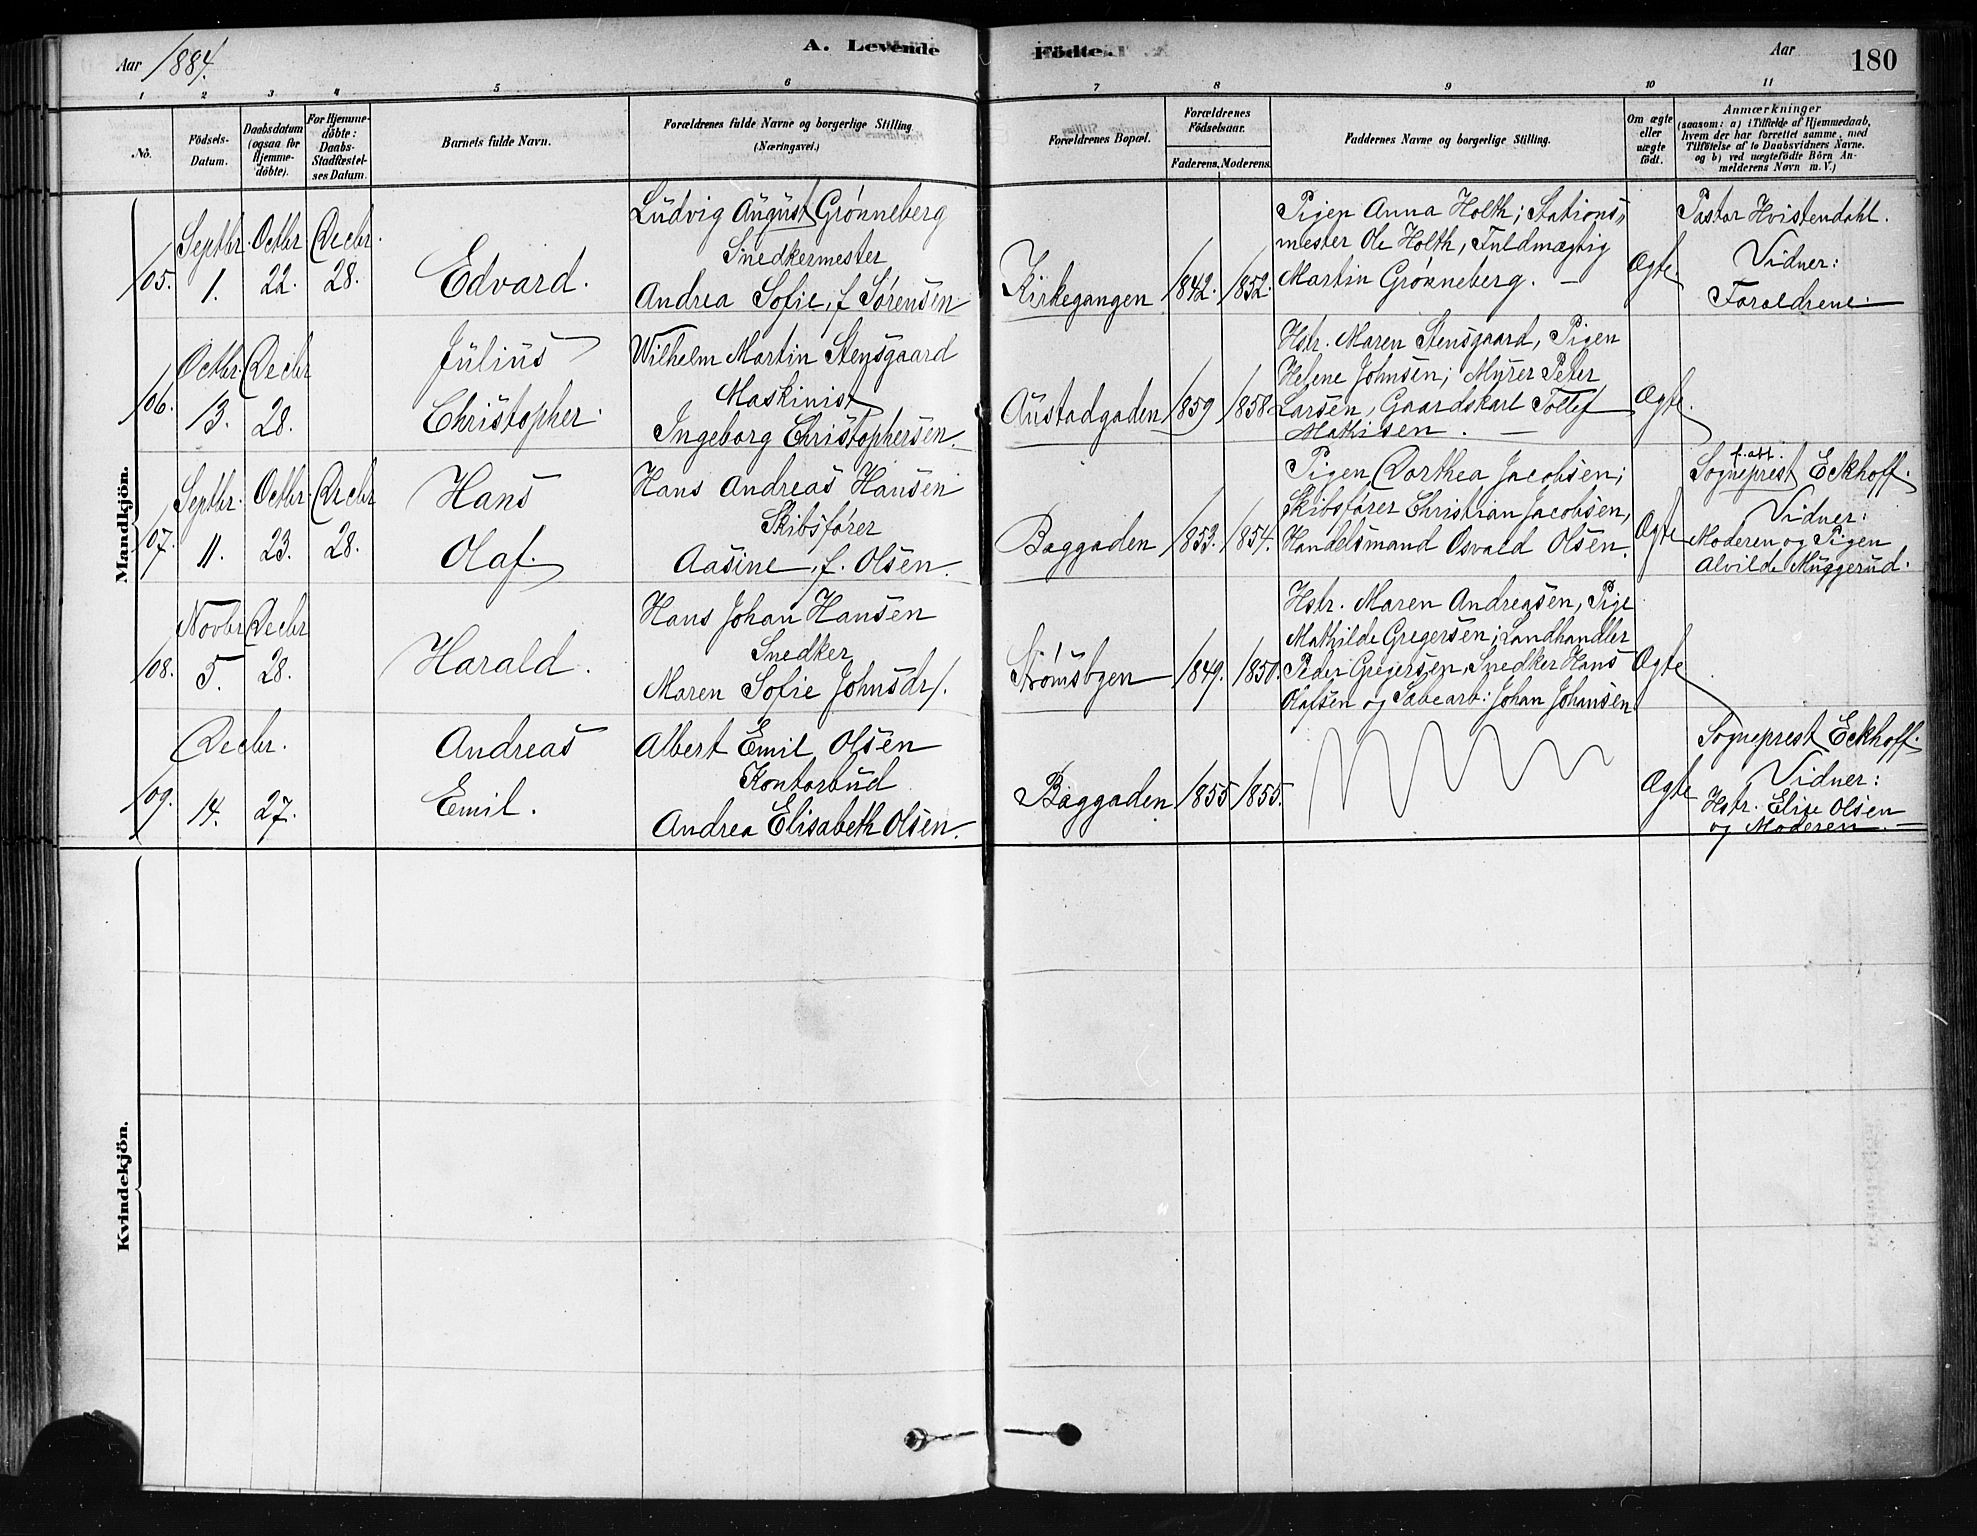 Aar 1884.
A. Levende
Födte.
Aar
180
1 2 3 4 5 6 7 8 9 10 11
No.
Födsels-
Datum.
Daabsdatum
(ogsaa for
Hjemme-
döbte).
For Hjemme-
döbte:
Daabs-
Stadfæstel-
ses Datum.
Barnets fulde Navn.
Forældrenes fulde Navne og borgerlige Stilling
(Næringsvei.)
Forældrenes Bopæl.
Forældrenes
Födselsaar.
Faderens. Moderens.
Faddernes Navne og borgerlige Stilling.
Om ægte
eller
uægte
födt.
Anmærkninger
(saasom: a) i Tilfælde af Hjemmedaab,
hvem der har forrettet samme, med
Tilföielse af to Daabsvidners Navne,
og b) ved uægtefödte Börn An-
melderens Navn m. V.)
Mandkjön.
105.
Septbr.
1.
Octbr
22.
Decbr.
28.
Edvard.
Ludvig August Grønneberg
Snedkermester
Andrea Sofie, f. Sørensen
Kirkegangen
1842. 1852.
Pigen Anna Holth; Stations-
mester Ole Holth, Fuldmægtig
Martin Grønneberg. —
Ægte.
Pastor Hvistendahl.
Vidner:
Forældrene.
106.
Octbr.
13.
Decbr
28.
Julius
Christopher.
Wilhelm Martin Stensgaard
Maskinist
Ingeborg Christophersen.
Austadgaden
1859 1858
Hstr. Maren Stensgaard, Pigen
Helene Johnsen; Murer Peter
Larsen, Gaardskarl Tollef
Mathisen. —
Ægte.
107.
Septbr.
11.
Octbr.
23.
Decbr
28.
Hans
Olaf.
Hans Andreas Hansen
Skibsfører
Aasine, f. Olsen.
Baggaden
1853. 1854.
Pigen Dorthea Jacobsen;
Skibsfører Christian Jacobsen,
Handelsmand Osvald Olsen.
Ægte
Sogneprest Eckhoff.
Vidner:
Moderen og Pigen
Alvilde Muggerud.
108.
Novbr
5.
Decbr
28.
Harald.
Hans Johan Hansen
Snedker
Maren Sofie Johnsdr.
Strømsbgen
1849. 1850.
Hstr. Maren Andreasen, Pige
Mathilde Gregersen; Landhandler
Peder Gregersen, Snedker Hans
Olafsen og Johan Johansen
Ægte
109.
Decbr.
14.
27.
Andreas
Emil.
Albert Emil Olsen
Kontorbud
Andrea Elisabeth Olsen.
Baggaden
1855 1855.
Ægte
Sogneprest Eckhoff.
Vidner:
Hstr. Elise Olsen
og Moderen. —
Kvindekjön.